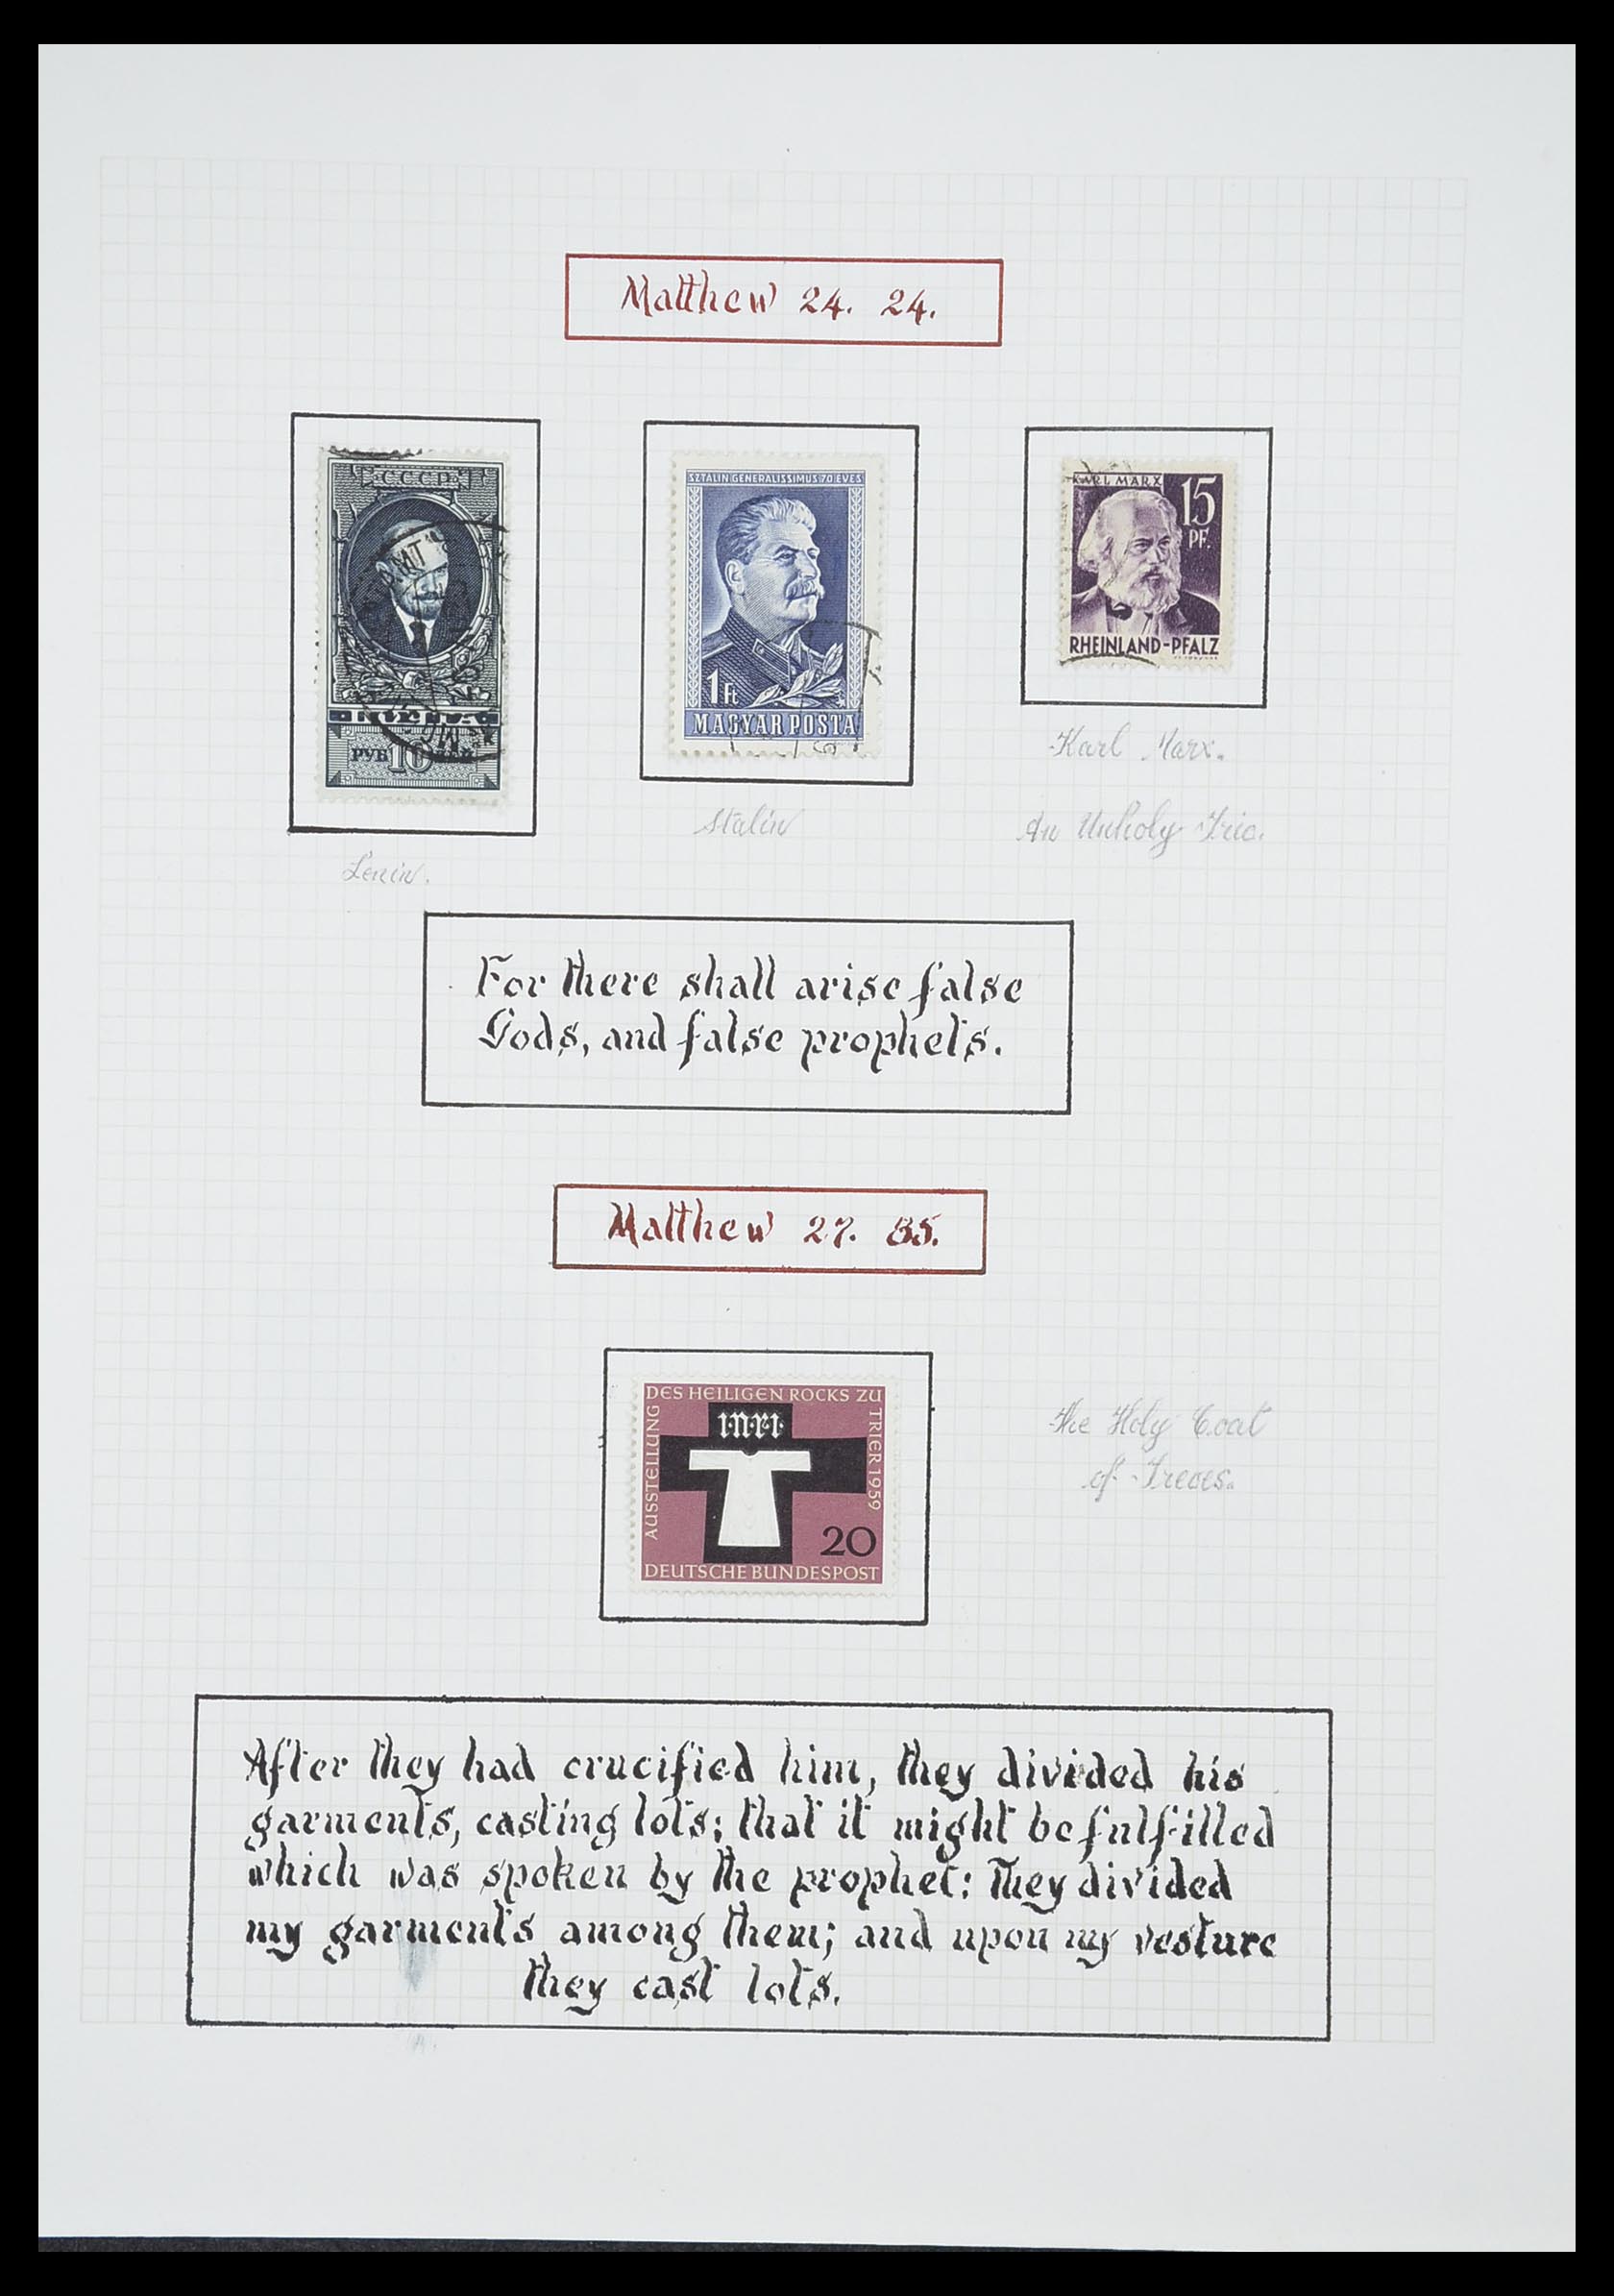 Matthew 24. 24.
СССР
ПОЧТА
РУБ 10 РУБ
SZTÁLIN GENERALISSIMUS 70 ÉVES
1 Ft
MAGYAR POSTA
KARL MARX
15
PF.
RHEINLAND-PFALZ
Lenin.
Stalin
Karl Marx.
An Unholy Trio.
For there shall arise false
Gods, and false prophets.
Matthew 27. 35.
AUSSTELLUNG
DES HEILIGEN ROCKS ZU
TRIER 1959
I·N·R·I
20
DEUTSCHE BUNDESPOST
The Holy Coat
of Treves.
After they had crucified him, they divided his
garments, casting lots; that it might be fulfilled
which was spoken by the prophet: They divided
my garments among them; and upon my vesture
they cast lots.